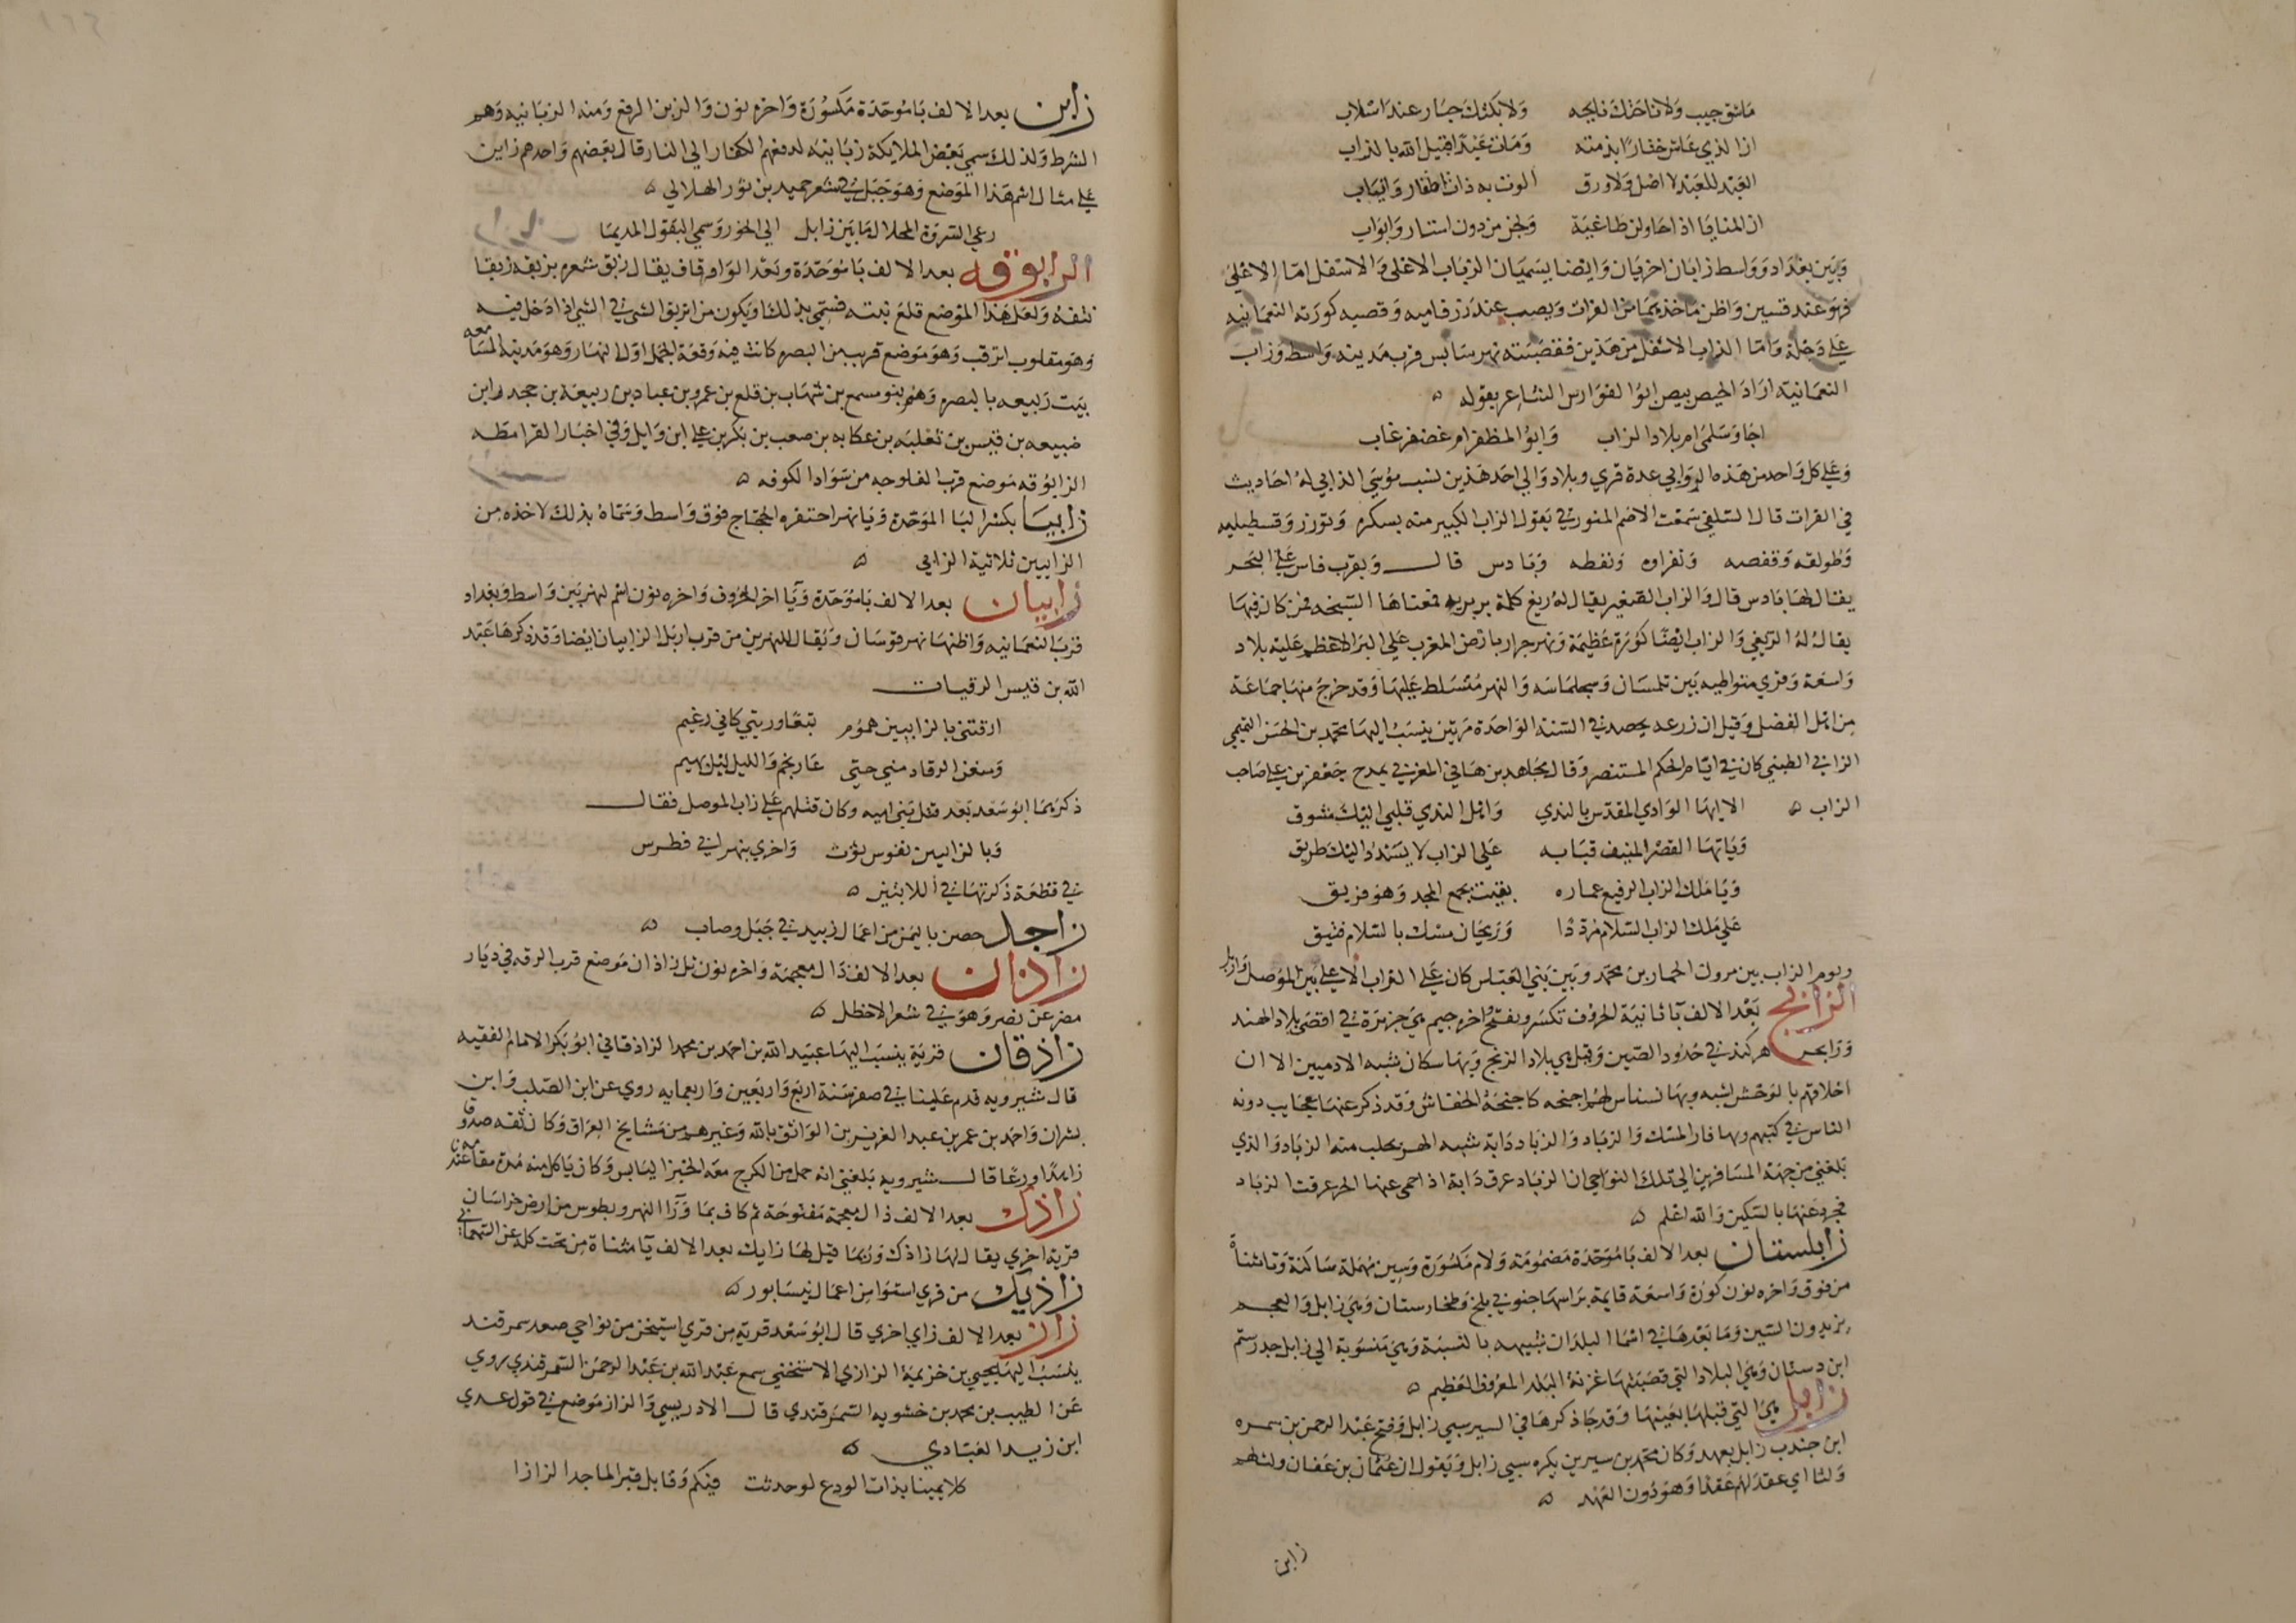 ما شق جيب ولا ناحتك نايحه   ولا بكتك جياد عند اسلاب
ان الذي عاش ختارا بذمته   ومات عبدا قتيل الله بالزاب
العبد للعبد لا اصل ولا ورق   الوت به ذات اظفار وانياب
ان المنايا اذا حاولن طاغية   ولجن من دون استار وابواب
وبين بغداد وواسط زابان اخريان وايضا يسميان الزباب الاعلى والاسفل اما الاعلى
فهو عند قسين واظن ماخذهما من الفرات ويصب عند زرفاميه وقصبه كورته النعمانيه
علي دجلة واما الزاب الاسفل من هذين فقصبته نهر سابس قرب مدينه واسط وزاب
النعمانيه اراد الحيص بيص ابو الفوارس الشاعر بقوله ه
اجا وسلمى ام بلاد الزاب   وابو المظفر ام غضنفر غاب
وعلى كل واحد من هذه الزوابي عدة قري وبلاد والي احد هذين نسب موسي الزابي له احاديث
في القرات قال السلفي سمعت الاصم المنورقي يقول الزاب الكبير منه بسكره وتوزر وقسطيليه
وطولقه وقفصه ونفزاوه ونفطه وبادس قال وبقرب فاس علي البحر
يقال لها بادس قال والزاب الصغير يقال له ريغ كلمة بربريه معناها السبخه فمن كان فيها
يقال له الريغي والزاب ايضا كورة عظيمة ونهر جرار بارض المغرب علي البر الاعظم عليه بلاد
واسعة وقري متواطيه بين تلمسان وسجلماسه والنهر متسلط عليها وقد خرج منها جماعة
من اهل الفضل وقيل ان زرعه يحصد في السنة الواحدة مرتين ينسب اليها محمد بن الحسن التميمي
الزابي الطبني كان في ايام الحكم المستنصر وقال مجاهد بن هاني المغربي يمدح جعفر بن علي صاحب
الزاب ه   الا ايها الوادي المقدس بالندي   واهل الندي قلبي اليك مشوق
ويا ايها القصر المنيف قبابه   علي الزاب لا يسدد اليك طريق
ويا ملك الزاب الرفيع عماده   بقيت لجمع المجد وهو فريق
علي ملك الزاب السلام مرددا   وريحان مسك بالسلام فتيق
ويوم الزاب بين مروان الحمار بن محمد وبين بني العباس كان علي الزاب الاعلى بين الموصل واربل
الزابج بعد الالف با ثانية الحروف تكسر وتفتح اخره جيم هي جزيرة في اقصي بلاد الهند
وزابج هركند في حدود الصين وقيل هي بلاد الزنج وبها سكان شبه الادميين الا ان
اخلاقهم بالوحش اشبه وبها نسناس لهم اجنحه كاجنحة الخفاش وقد ذكر عنها عجايب دونه
الناس في كتبهم وبها فار المسك والزباد والزباد دابة شبه الهر يحلب منه الزباد والذي
بلغني من جهة المسافرين الي تلك النواحي ان الزباد عرق دابة اذا حمي عنها الحر عرقت الزباد
فجرد عنها بالسكين والله اعلم ه
زابلستان بعد الالف با موحدة مضمومة ولام مكسورة وسين مهملة ساكنة وتا مثناة
من فوق واخره نون كورة واسعة قايمة براسها جنوبي بلخ وطخارستان وهي زابل والعجم
يزيدون السين وما بعدها في اسما البلدان شبيهه بالنسبة وهي منسوبة الي زابل جد رستم
ابن دستان وهي البلاد التي قصبتها غزنة البلد المعروف العظيم ه
زابل هي التي قبلها بعينها وقد جا ذكرها في السير سبي زابل وفتح عبد الرحمن بن سمره
ابن جندب زابل بعهد وكان محمد بن سيرين يكره سبي زابل ويقول ان عثمان بن عفان ولث لهم
ولثا اي عقد لهم عقدا وهو دون العهد ه
زابن
زابن بعد الالف با موحدة مكسورة واخره نون والزبن الرفع ومنه الزبانيه وهم
الشرط ولذلك سمي بعض الملايكة زبانيه لدفعهم الكفار الي النار قال بعضهم واحدهم زابن
علي مثال اسم هذا الموضع وهو جبل في شعر حميد بن ثور الهلالي ه
رعي السروة المحلال ما بين زابل   الي الخور وسمي البقول المديما
الزابوقه بعد الالف با موحدة وبعد الواو قاف يقال زبق شعره يزبقه زبقا
نتفه ولعل هذا الموضع قلع نبته فسمي بذلك او يكون من انزبق الشي في الشي اذا دخل فيه
وهو مقلوب انزقب وهو موضع قريب من البصره كانت فيه وقعة الجمل اول النهار وهو مدينة المسامعه
بيت ربيعه بالبصره وهم بنو مسمع بن شهاب بن قلع بن عمرو بن عباد بن ربيعة بن جحدر ابن
ضبيعه بن قيس بن ثعلبه بن عكابه بن صعب بن بكر بن علي ابن وايل وفي اخبار القرامطه
الزابوقه موضع قرب الفلوجه من سواد الكوفه ه
زابيا بكسر البا الموحدة ويا نهر احتفره الحجاج فوق واسط وسماه بذلك لاخذه من
الزابيين ثلاثية الزابي ه
زابيان بعد الالف با موحدة ويا اخر الحروف واخره نون اسم لنهر بين واسط وبغداد
قرب النعمانيه واظنها نهر قوسان ويقال للنهرين من قرب اربل الزابيان ايضا وقد ذكرها عبد
الله بن قيس الرقيات
ارقتني بالزابيين هموم   يتعاورنني كاني غريم
ومنعن الرقاد مني حتي   غار نجم والليل ليل بهيم
ذكرهما ابو سعد بعد قتل بني اميه وكان قتلهم علي زاب الموصل فقال
وبالزابيين نفوس ثوت   واخري بنهر ابي فطرس
في قطعة ذكرتها في اللابتين ه
زاجل حصن باليمن من اعمال زبيد في جبل وصاب ه
زاذان بعد الالف ذال معجمة واخره نون تل زاذان موضع قرب الرقه في ديار
مضر عن نصر وهو في شعر الاخطل ه
زاذقان قرية ينسب اليها عبيد الله بن احمد بن محمد الزاذقاني ابو بكر الامام الفقيه
قال شيرويه قدم علينا في صفر سنة اربع واربعين واربعمايه روي عن ابن الصلب وابن
بشران واحمد بن عمر بن عبد العزيز بن الواثق بالله وغيرهم من مشايخ العراق وكان ثقه صدوقا
زاهدا ورعا قال شيرويه بلغني انه حمل من الكرج معه الخبز اليابس وكان ياكل منه مدة مقامه عندنا
زاذك بعد الالف ذال معجمة مفتوحة ثم كاف بما ورا النهر وبطوس من ارض خراسان
قرية اخري يقال لها زاذك وربما قيل لها زايك بعد الالف يا مثناة من تحت كله عن السمعاني
زاذيك من قري استوا من اعمال نيسابور ه
زاز بعد الالف زاي اخري قال ابو سعد قرية من قري اشتيخن من نواحي صغد سمرقند
ينسب اليها يحيي بن خزيمة الزازي الاشتيخني سمع عبد الله بن عبد الرحمن السمرقندي روي
عن الطيب بن محمد بن خشويه السمرقندي قال الادريسي والزاز موضع في قول عدي
ابن زيد العبادي ه
كلا يمينا بذات الودع لو حدثت   فيكم وقابل قبر الماجد الزازا